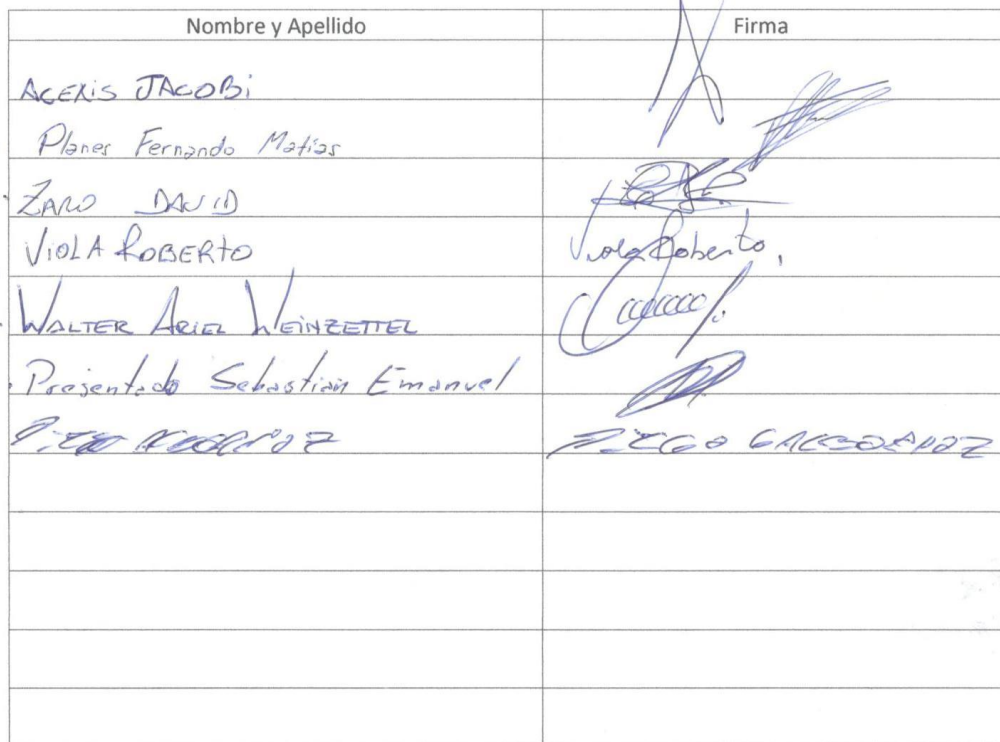 Nombre y Apellido Firma
ALEXIS JACOBI
Planes Fernando Matias
ZARO DAVID
VIOLA ROBERTO Viola Roberto,
WALTER ARIEL WEINZETTEL
Presentado Sebastian Emanuel
DIEGO